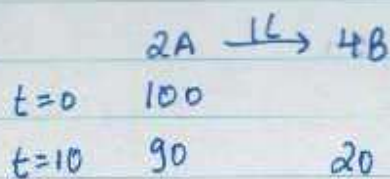 2A ⟶ 4B
t=0 100
t=10 90 20